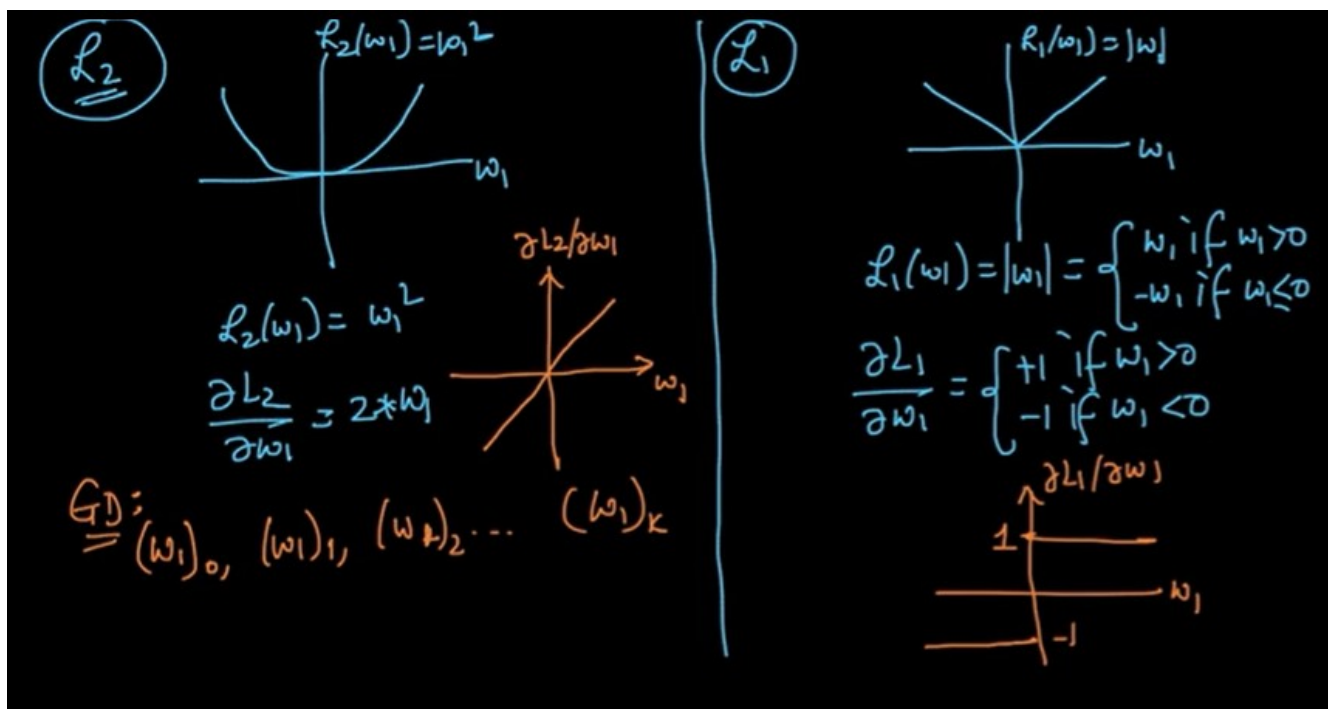 L2
L2(w1) = w1²
w1
∂L2/∂w1
w1
L2(w1) = w1²
∂L2/∂w1 = 2*w1
GD: (w1)0, (w1)1, (w1)2 .... (w1)k
L1
L1(w1) = |w1|
w1
L1(w1) = |w1| = { w1 if w1>0
-w1 if w1≤0
∂L1/∂w1 = { +1 if w1>0
-1 if w1<0
∂L1/∂w1
1
w1
-1